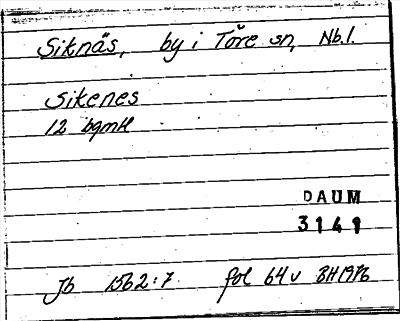 Siknäs, by i Töre sn, Nb.l.
Sikenes
12 bgmH
DAUM
3141
Jb 1562:7 fol 64v BH1976